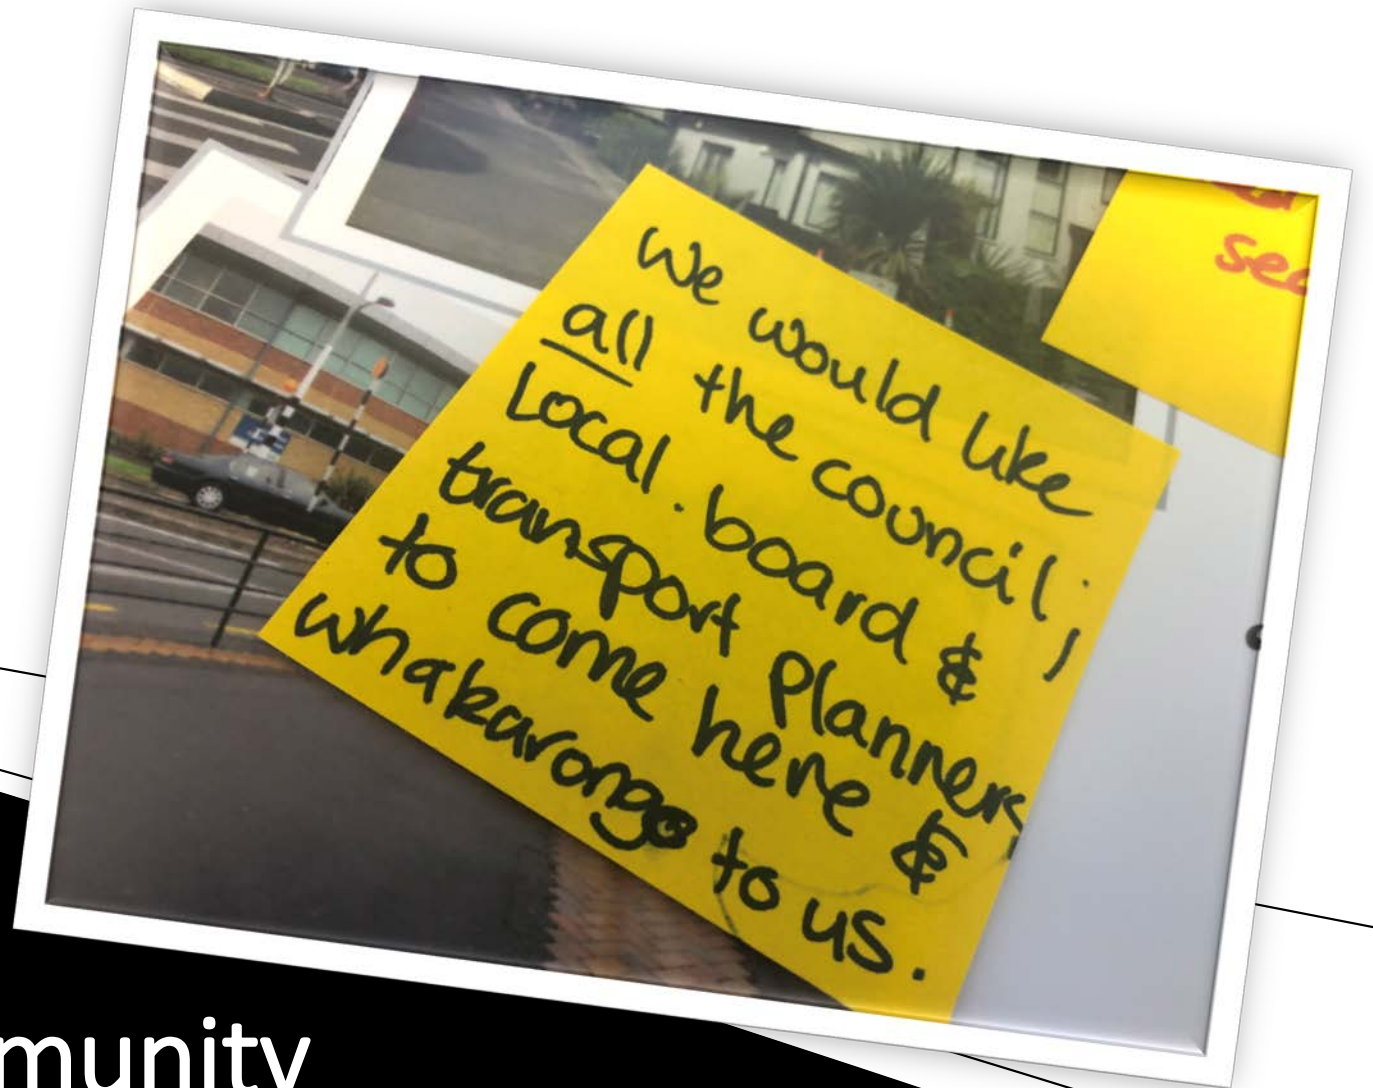 We would like
all the council,
Local board &
transport Planners
to come here &
whakarongo to us.
see
munity